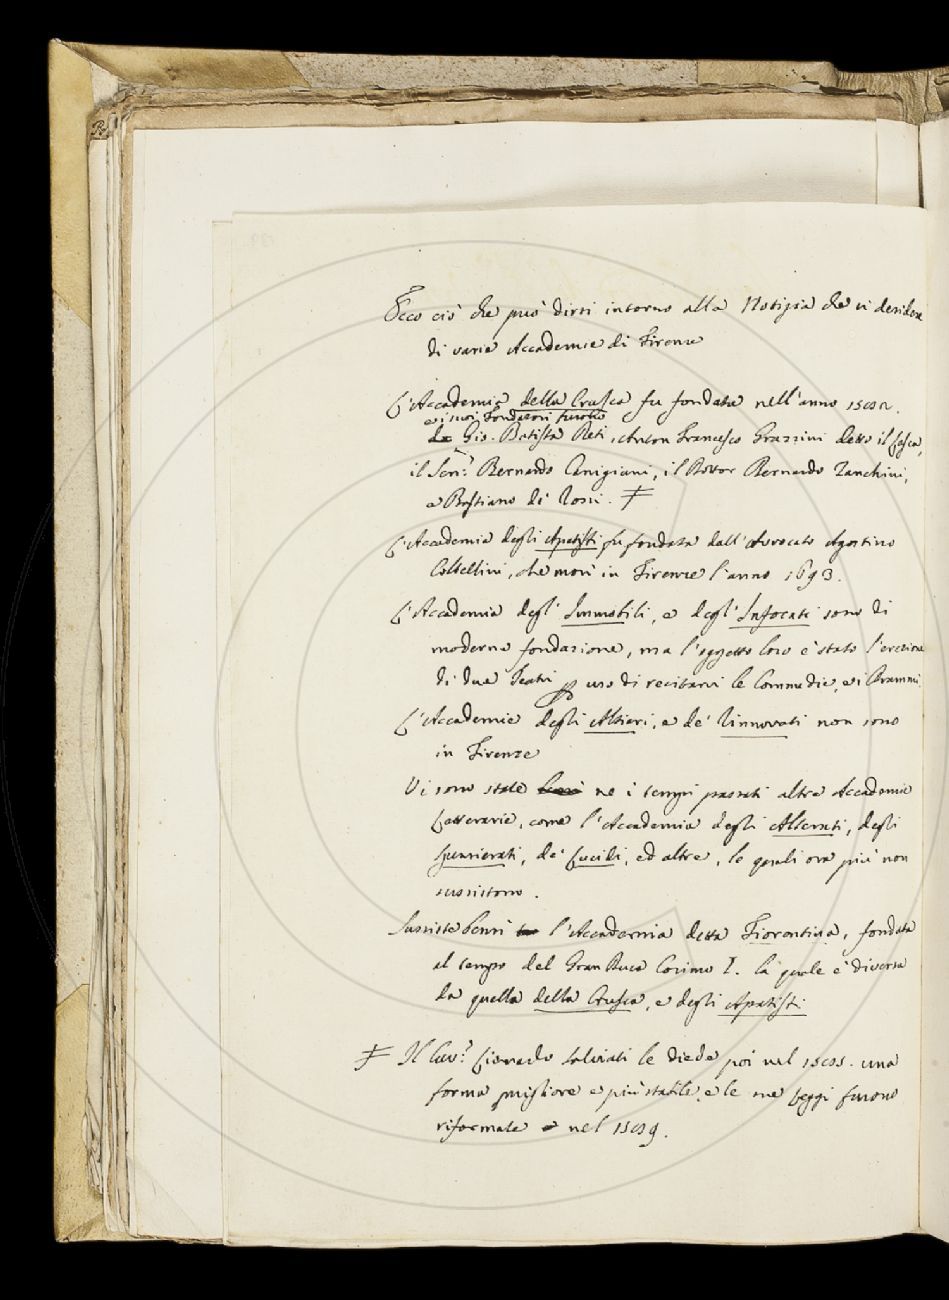 Ecco ciò che può dirsi intorno alla Notizia che si desidera
di varie Accademie di Firenze
L'Accademia della Crusca fu fondata nell'anno 1582.
e i suoi Fondatori furono
da Gio. Batista Deti, Anton Francesco Grazzini detto il Lasca,
il Sen.re Bernardo Canigiani, il Dottor Bernardo Zanchini,
e Bastiano de' Rossi. ≠
L'Accademia degli Apatisti fu fondata dall'Avvocato Agostino
Coltellini, che morì in Firenze l'anno 1693.
L'Accademia degl' Immobili, e degl' Infocati sono di
moderna fondazione, ma l'oggetto loro è stato l'erezione
di due Teatri p uso di recitarvi le Commedie, e i Drammi.
L'Accademie degli Alterati, e de' Rinnovati non sono
in Firenze
Vi sono state ne i tempi passati altre Accademie
Letterarie, come l'Accademia degli Alterati, degli
Spensierati, de' Lucidi, ed altre, le quali ora più non
sussistono.
Sussiste bensì l'Accademia detta Fiorentina, fondata
al tempo del Gran Duca Cosimo I. la quale è diversa
da quella della Crusca, e degli Apatisti
≠ Il Cav.re Lionardo Salviati le diede poi nel 1585. una
forma migliore e più stabile, e le sue Leggi furono
riformate nel 1589.